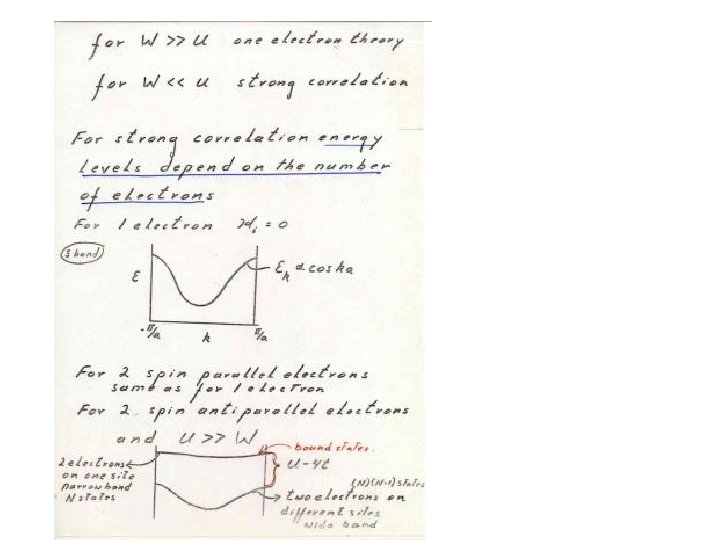 for W >> U one electron theory
for W << U strong correlation
For strong correlation energy
levels depend on the number
of electrons
For 1 electron ℋᵢ = 0
s band
ε
Eₖ α cos ka
-π/a k π/a
For 2 spin parallel electrons
same as for 1 electron
For 2 spin antiparallel electrons
and U >> W
bound states.
2 electrons
on one site
narrow band
N states
U-4t
(N)(N-1) states
two electrons on
different sites
wide band